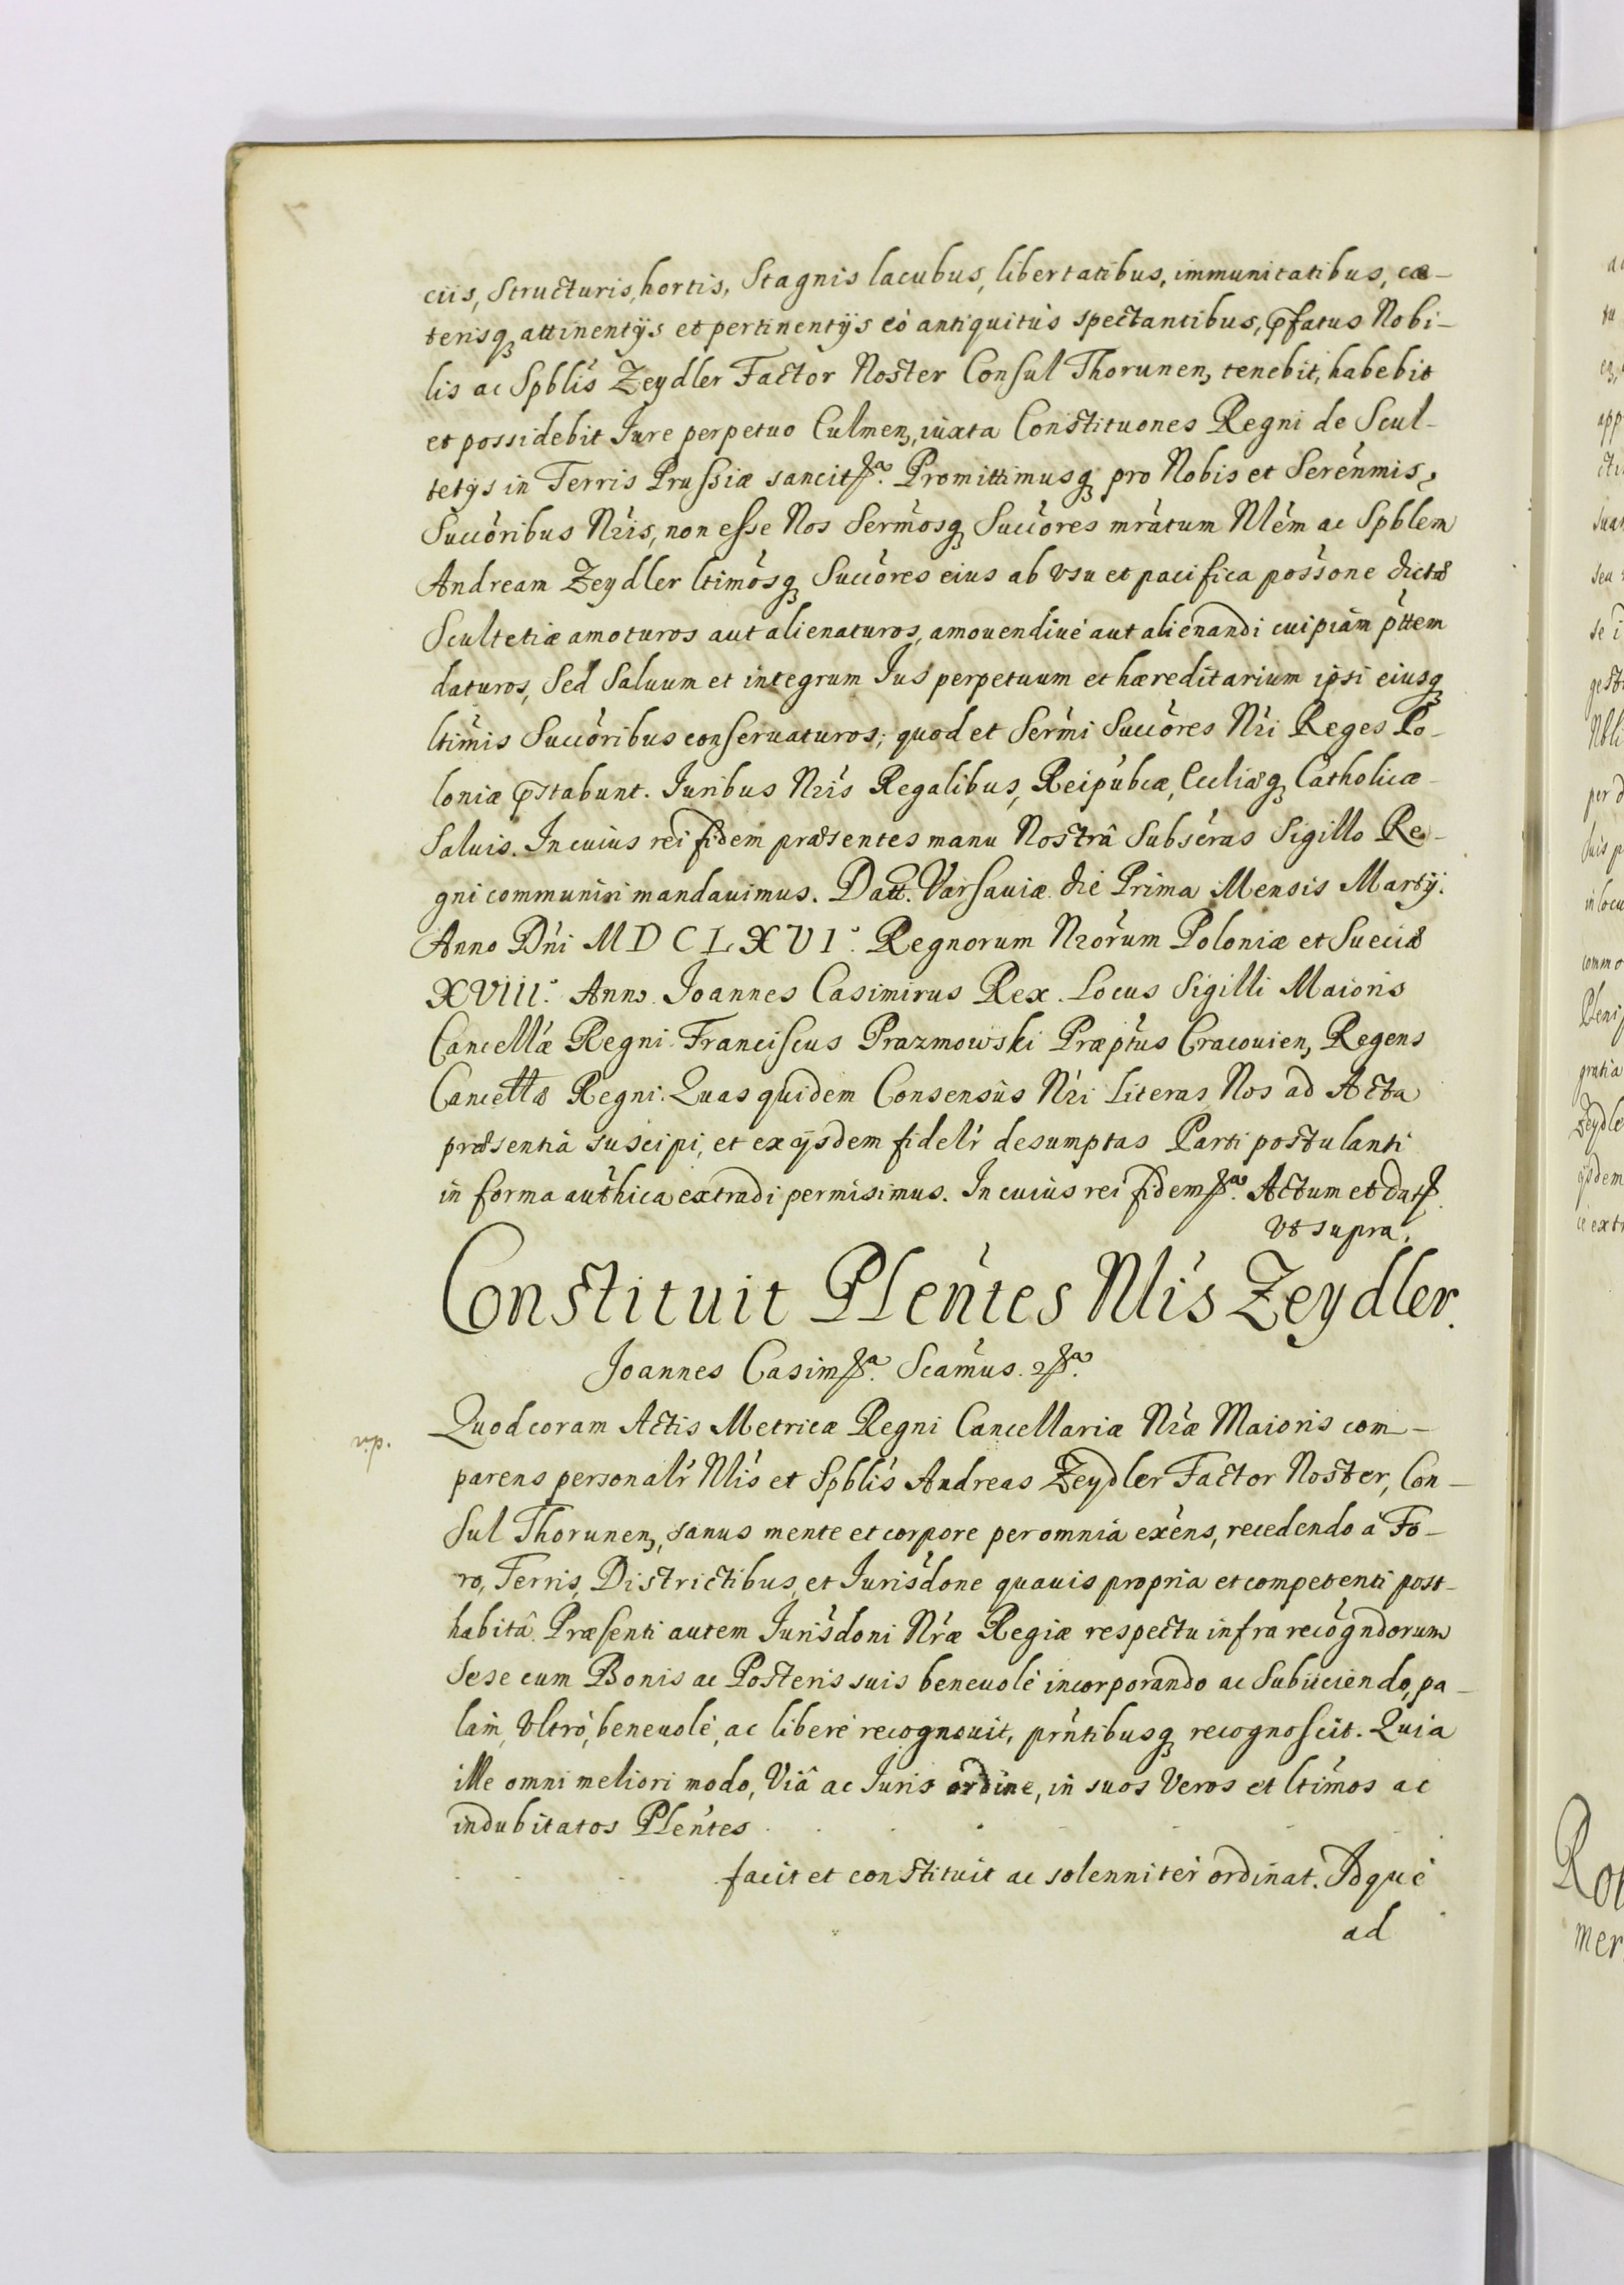 ciis, Structuris, hortis, Stagnis lacubus, libertatibus, immunitatibus, cæ-
terisqꝫ attinentijs et pertinentijs eò antiquitùs spectantibus, ꝓfatus Nobi-
lis ac Spblis Zeydler Factor Noster Consul Thorunenꝫ tenebit, habebit
et possidebit Jure perpetuo Culmenꝫ, iuxta Constituones Regni de Scul-
tetijs in Terris Prussiæ sancit. Promittimusqꝫ pro Nobis et Serenmis
Succoribus Nris, non esse Nos Sermosqꝫ Succores mratum Nlem ac Spblem
Andream Zeydler ltimosqꝫ Succores eius ab vsu et pacifica possone dictæ
Scultetiæ amoturos aut alienaturos, amouendiué aut alienandi cuipiam pttem
daturos, Sed Saluum et integrum Jus perpetuum et hæreditarium ipsi eiusqꝫ
ltimis Succoribus conseruaturos; quod et Sermi Succores Nri Reges Po-
loniæ ꝓstabunt. Juribus Nris Regalibus, Reipubcæ, Ccliæqꝫ Catholicæ
Saluis. In cuius rei fidem præsentes manu Nostrâ Subscras Sigillo Re-
gni communiri mandauimus. Datt. Varsauiæ die Prima Mensis Martij.
Anno Dni M D C L X V I. Regnorum Nrorum Poloniæ et Sueciæ
XVIII. Anno Joannes Casimirus Rex. Locus Sigilli Maioris
Cancellæ Regni. Franciscus Prazmowski Præptus Cracouienꝫ Regens
Cancellæ Regni. Quas quidem Consensus Nri Literas Nos ad Acta
præsentia suscipi, et ex ijsdem fidelr desumptas Parti postulanti
in forma authica extradi permisimus. In cuius rei fidem. Actum et dat.
vt supra.
Constituit Plentes Nlis Zeydler.
Joannes Casim. Scamus.
Quod coram Actis Metricæ Regni Cancellariæ Nræ Maioris com-
parens personalr Nlis et Spblis Andreas Zeydler Factor Noster, Con-
sul Thorunenꝫ, sanus mente et corpore per omnia exens, recedendo à Fo-
ro, Terris, Districtibus, et Jurisdone quauis propria et competenti post-
habitâ. Præsenti autem Jurisdoni Nræ Regiæ respectu infra recogndorum
Sese cum Bonis ac Posteris suis beneuolé incorporando ac Subijciendo, pa-
lam, Vltrò, beneuolé, ac liberé recognouit, prntibusqꝫ recognoscit. Quia
ille omni meliori modo, Viâ ac Juris ordine, in suos Veros et ltimos ac
indubitatos Plentes
facit et constituit ac solenniter ordinat. Idque
ad